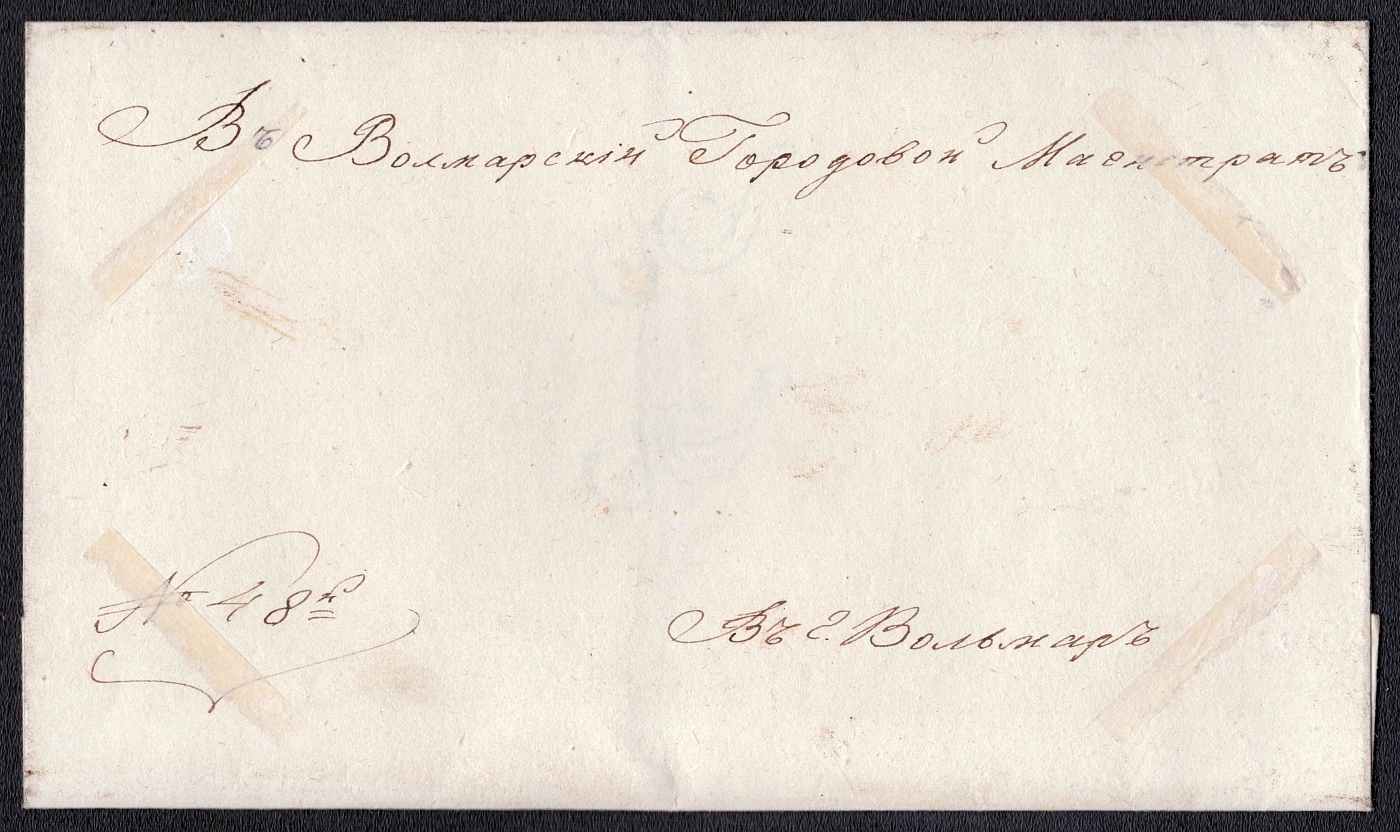 Въ Волмарскій Городовой Магистратъ
№ 48й
Въ г. Вольмаръ